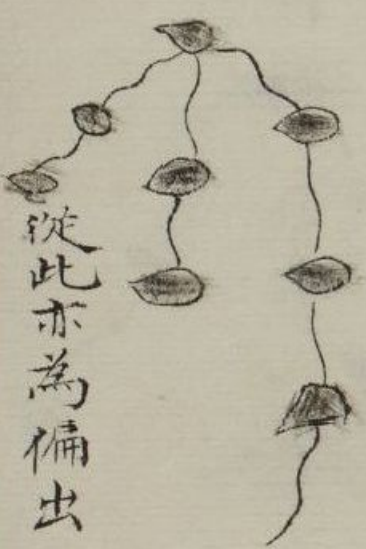 從此亦為偏出